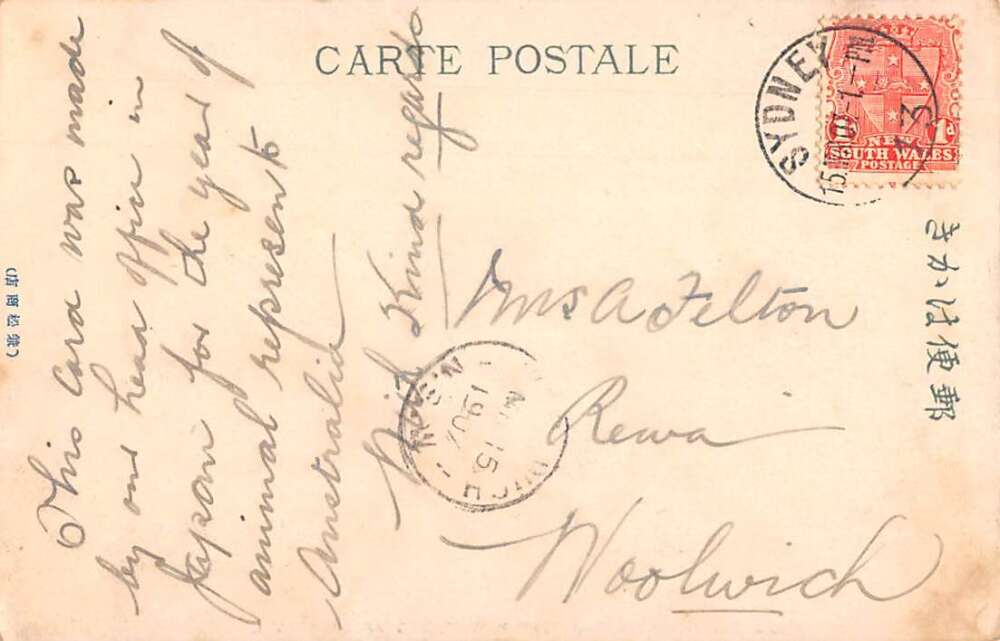 CARTE POSTALE
This card was made
by our head office in
Japan for the year of
animal represents
Australia
With Kind regards
Mrs A Felton
Rewa
Woolwich
SYDNEY
NEW
SOUTH WALES
POSTAGE
1d
N.S.W
15
190
きかは便郵